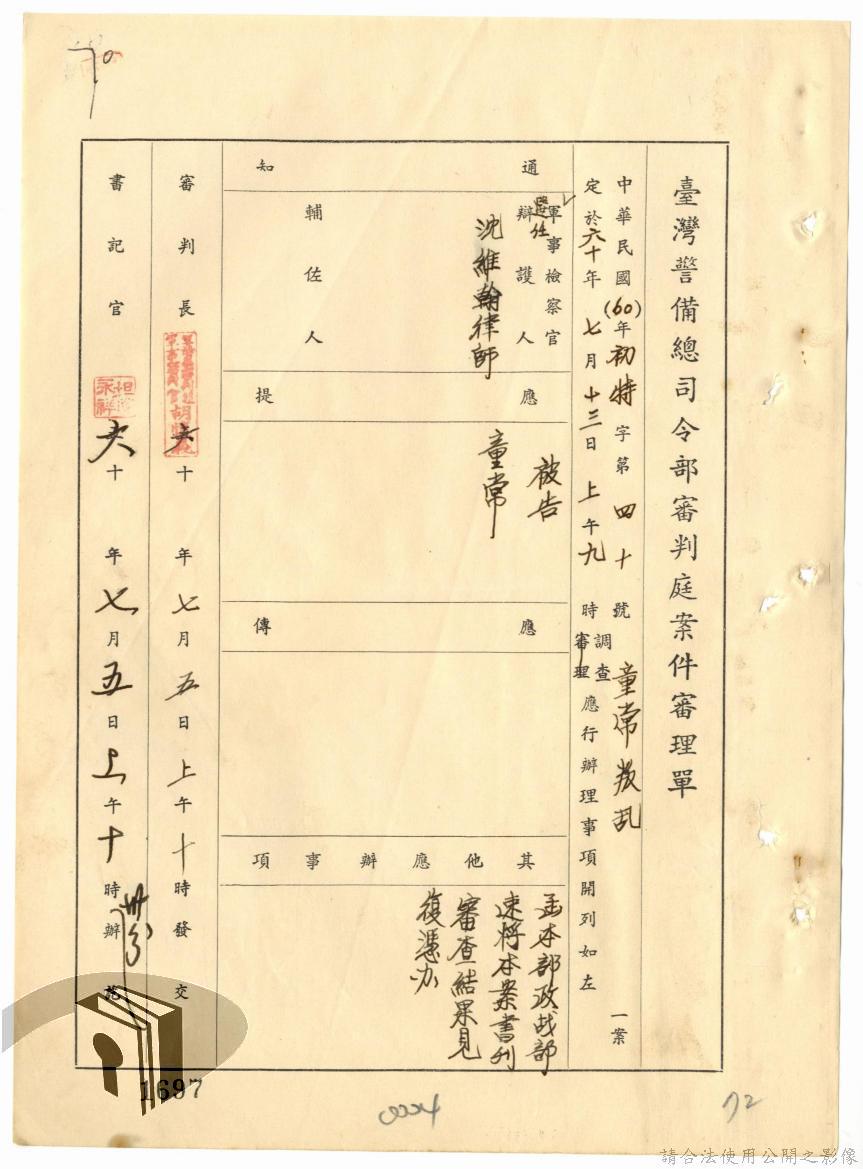 臺灣警備總司令部審判庭案件審理單
中華民國(60)年初特字第四十號童常叛乱一案
定於六十年七月十三日上午九時調查審理應行辦理事項開列如左
通知
軍事檢察官
選任辯護人
沈維翰律師
輔佐人
應提
被告
童常
應傳
其他應辦事項
函本部政战部
速將本案書刊
審查結果見
復憑办
審判長
六十年七月五日上午十時發交
書記官
六十年七月五日上午十時卅分辦
70
1697
72
請合法使用公開之影像